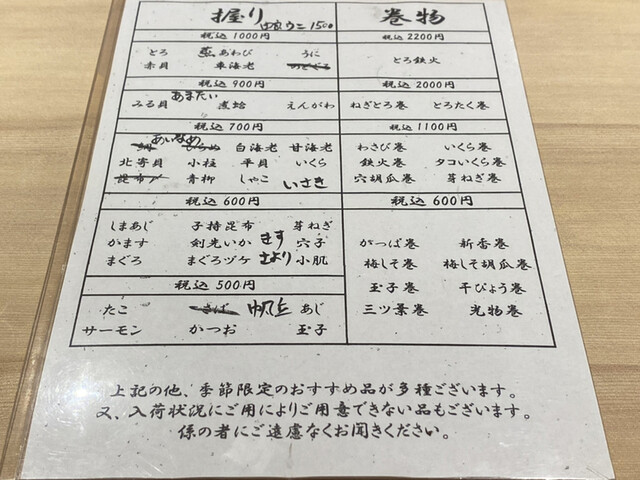 握り ウニ 1500
税込 1000円
とろ 蒸あわび うに
赤貝 車海老 のどぐろ
税込 900円
あまたい
みる貝 煮蛤 えんがわ
税込 700円
あいなめ
鯛 ひらめ 白海老 甘海老
北寄貝 小柱 平貝 いくら
昆布〆 青柳 しゃこ いさき
税込 600円
しまあじ 子持昆布 芽ねぎ
かます 剣先いか きす 穴子
まぐろ まぐろヅケ さより 小肌
税込 500円
たこ さば 帆立 あじ
サーモン かつお 玉子
巻物
税込 2200円
とろ鉄火
税込 2000円
ねぎとろ巻 とろたく巻
税込 1100円
わさび巻 いくら巻
鉄火巻 タコいくら巻
穴胡瓜巻 芽ねぎ巻
税込 600円
かっぱ巻 新香巻
梅しそ巻 梅しそ胡瓜巻
玉子巻 干ぴょう巻
三ツ葉巻 光物巻
上記の他、季節限定のおすすめ品が多種ございます。
又、入荷状況にご用によりご用意できない品もございます。
係の者にご遠慮なくお聞きください。